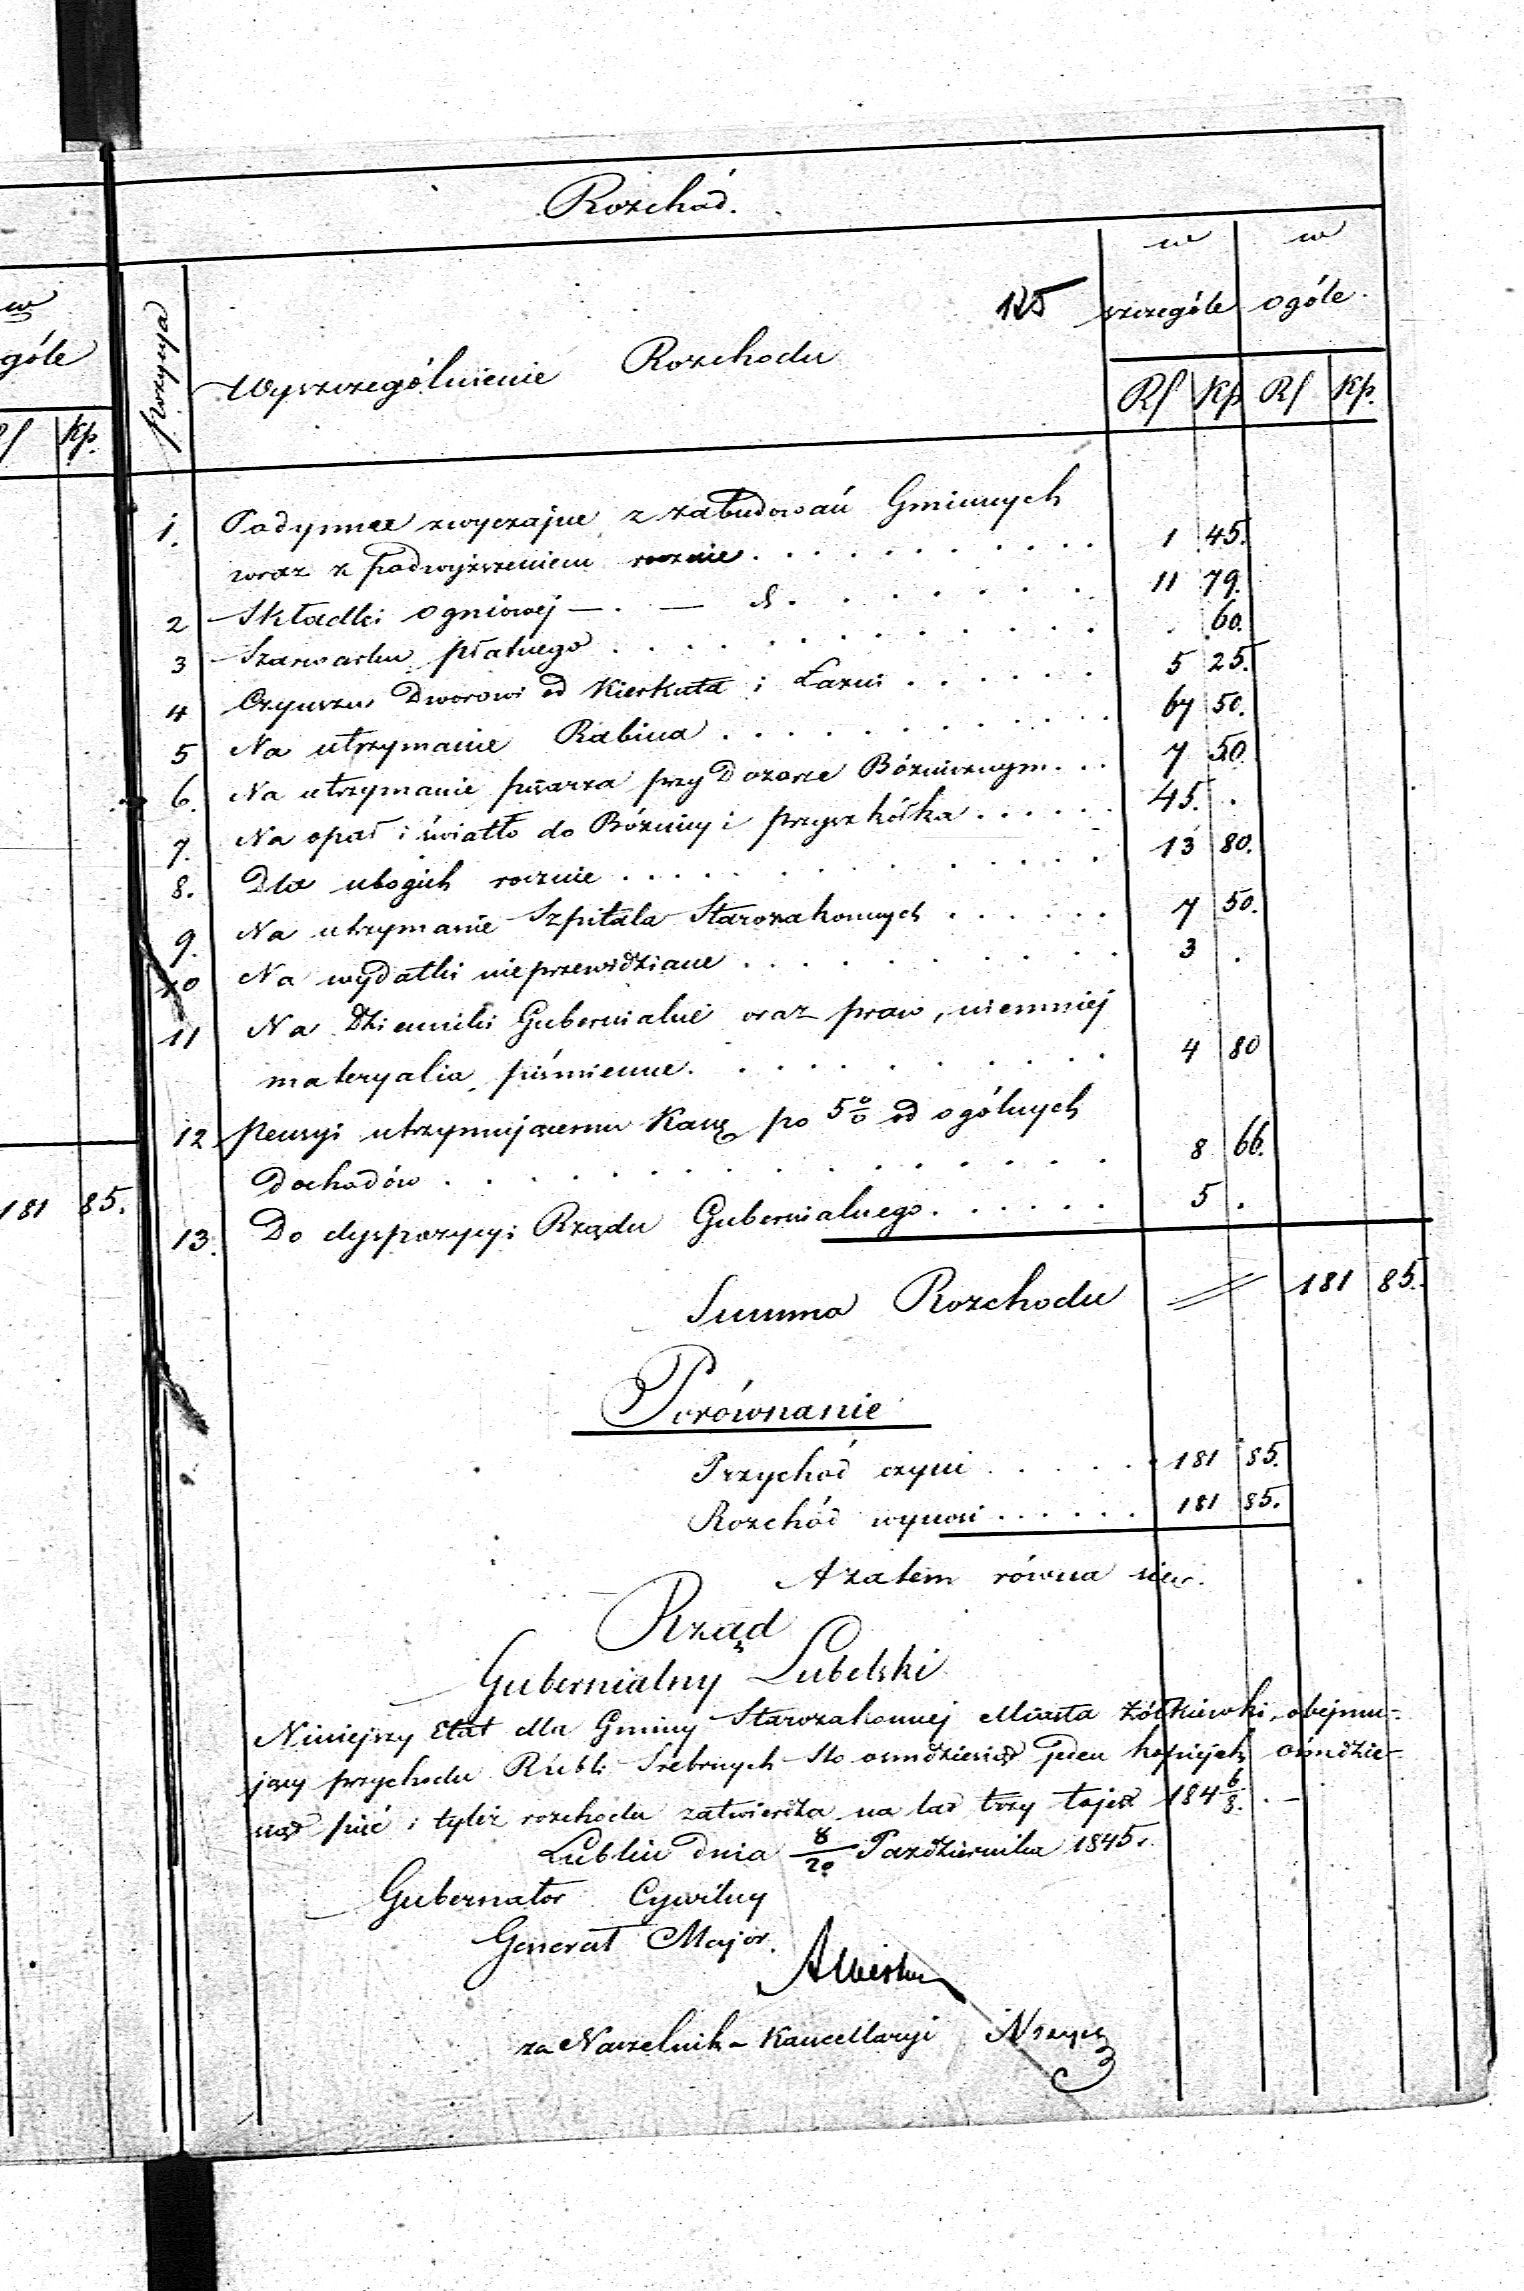 Rozchód.
w
góle
Rs Kp.
181 85.
pozycya
Wyszczególnienie Rozchodu
125
w szczególe
w ogóle.
Rs Kp Rs Kp.
1. Podymne zwyczajne z zabudowań Gminnych
wraz z podwyższeniem rocznie . . . . . . . . . . 1 45.
2 Składki ogniowej — . — d. . . . . . . . 11 79.
3 Szarwarku płatnego . . . . . . . . . . . . . . 60.
4 Czynszu Dworowi od Kierkuta i Łazni . . . . . . 5 25.
5 Na utrzymanie Rabina . . . . . . . . . . . 67 50.
6. Na utrzymanie pisarza przy Dozorze Bóżniczym . . . 7 50.
7. Na opał i światło do Bóżnicy i przyszkółka . . . . . . 45. .
8. Dla ubogich rocznie . . . . . . . . . . . . 13 80.
9. Na utrzymanie Szpitala Starozakonnych . . . . . . 7 50.
10 Na wydatki nieprzewidziane . . . . . . . . . . . 3 .
11 Na Dzienniki Gubernialne oraz praw, niemniej
materyalia piśmienne . . . . . . . . . . . 4 80
12 pensyi utrzymującemu Kassę po 5 0/0 od ogólnych
dochodów . . . . . . . . . . . . . . . . 8 66.
13. Do dyspozycyi Rządu Gubernialnego . . . . . . 5 .
Summa Rozchodu 181 85.
Porównanie
Przychód czyni . . . . . 181 85.
Rozchód wynosi . . . . . . 181 85.
A zatem równa się.
Rząd
Gubernialny Lubelski
Niniejszy Etat dla Gminy Starozakonnej Miasta Żółkiewki, obejmu-
jący przychodu Rubli Srebrnych sto ośmdziesiąt jeden kopiejek ośmdzie-
siąt pięć i tyleż rozchodu zatwierdza na lat trzy to jest 184 6/8. . —
Lublin dnia 8/20 Października 1845 r.
Gubernator Cywilny
Generał Major.
za Naczelnik - Kancellaryi